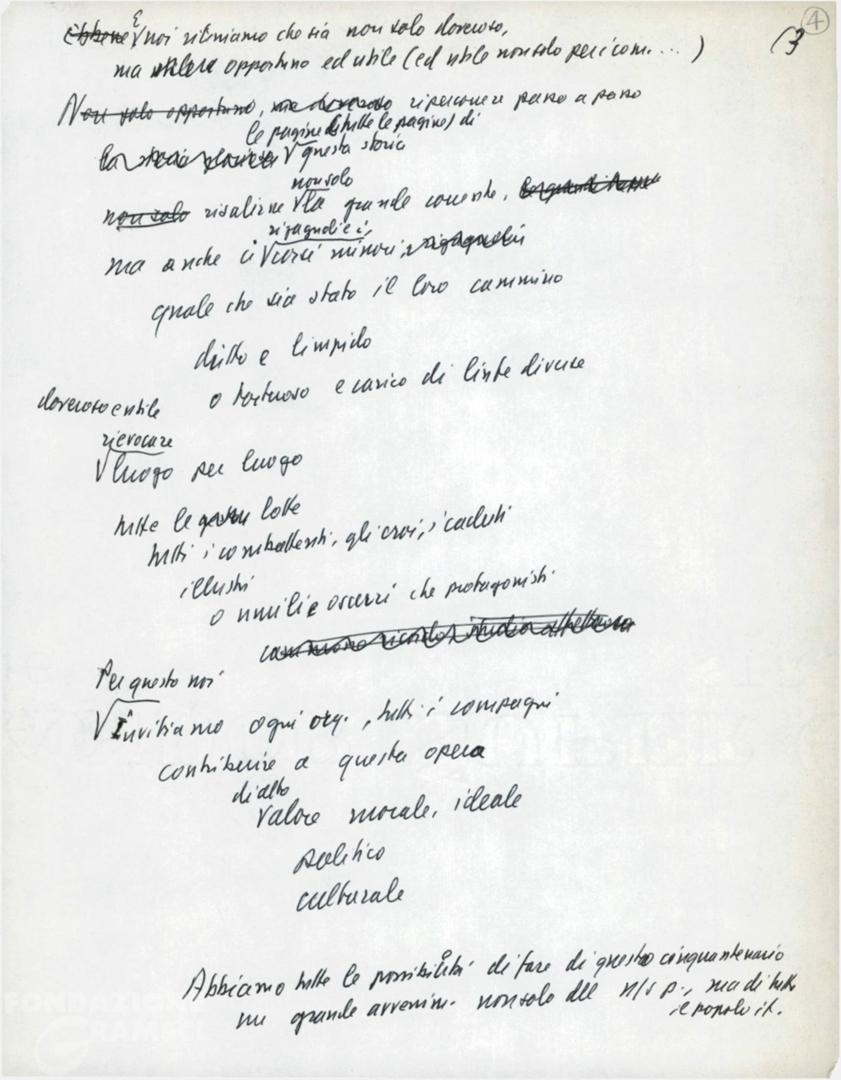 (3 4
Ebbene E noi riteniamo che sia non solo doveroso,
ma opportuno ed utile (ed utile non solo per i com. ...)
Non solo opportuno, ma doveroso ripercorrere passo a passo
le pagine (tutte le pagine) di
questa storia
non solo
non solo risalirne la grande corrente,
rigagnoli e i,
ma anche i corsi minori, rigagnoli
quale che sia stato il loro cammino
dritto e limpido
o tortuoso e carico di linfe diverse
doveroso e utile
rievocare
luogo per luogo
tutte le lotte
tutti i combattenti, gli eroi, i caduti
illustri
o umili e oscuri che protagonisti
Per questo noi
Invitiamo ogni org., tutti i compagni
contribuire a questa opera
di alto
valore morale, ideale
politico
culturale
Abbiamo tutte le possibilità di fare di questo cinquantenario
un grande avvenim. non solo del n/s p., ma di tutto
il popolo it.
FONDAZIONE
GRAMSCI